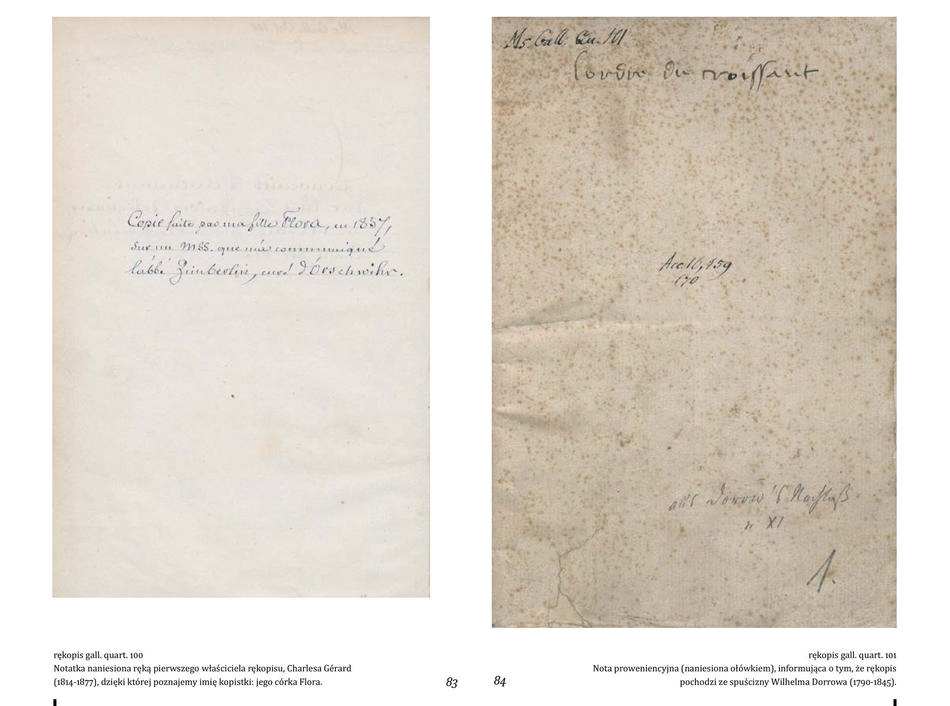 Copie faite par ma fille Flora, en 1857,
sur un MSS. que m'a communiqué
l'abbé Zimberlin, curé d'Orschwihr.
rękopis gall. quart. 100
Notatka naniesiona ręką pierwszego właściciela rękopisu, Charlesa Gérard
(1814-1877), dzięki której poznajemy imię kopistki: jego córka Flora.
83
Ms. Gall. Qu. 101
Lordre du croissant
Acc. 10,159
170
aus Dorow's Nachlaß
n XI
1.
84
rękopis gall. quart. 101
Nota proweniencyjna (naniesiona ołówkiem), informująca o tym, że rękopis
pochodzi ze spuścizny Wilhelma Dorrowa (1790-1845).